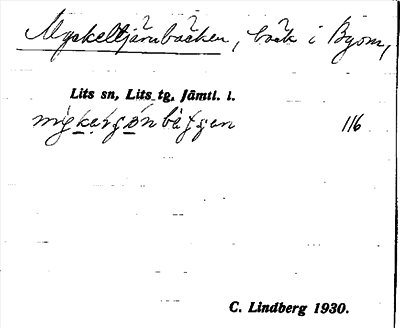 Myskeltjärnbäcken, bäck i Byom,
Lits sn, Lits tg, Jämtl. l.
116
C. Lindberg 1930.